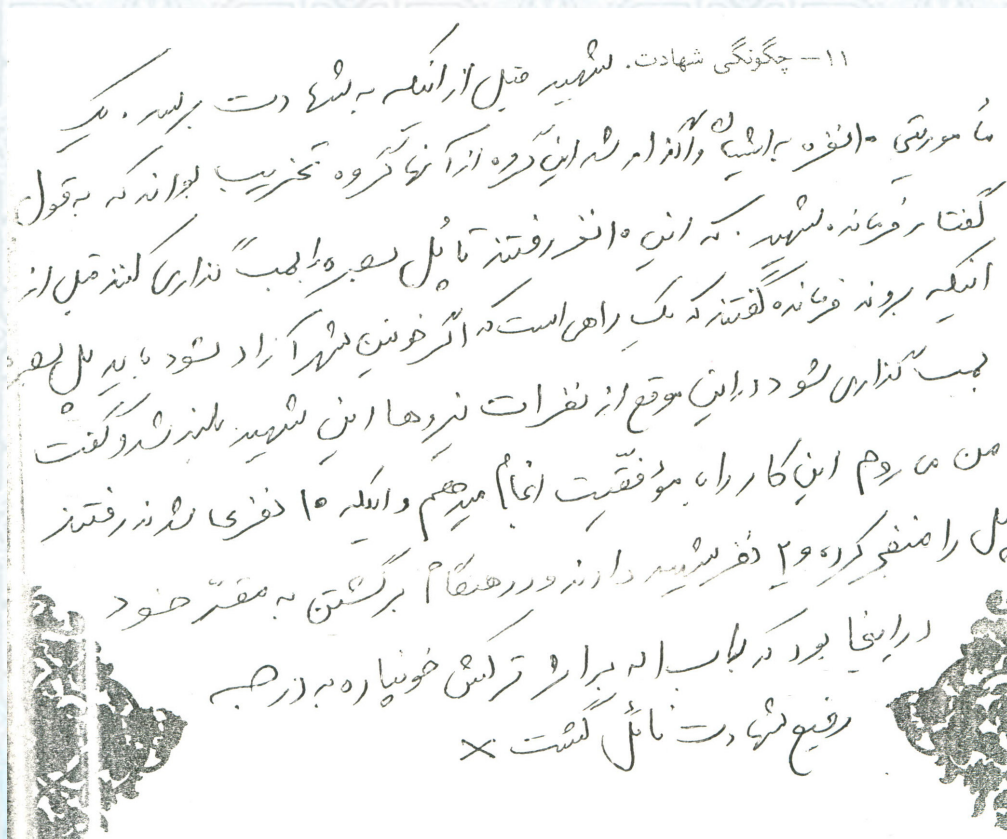 ۱۱– چگونگی شهادت. شهید قبل از اینکه به شهادت برسد. یک
مأموریتی ۱۰ نفره به ایشان واگذار شد این گروه از آنها گروه تخریب بودند که به قول
گفتار فرمانده شهید. که این ۱۰ نفر رفتند تا پُل بصره را بمب گذاری کنند قبل از
اینکه بروند فرمانده گفتند که یک راهی است که اگر خونین شهر آزاد بشود باید پل بصره
بمب گذاری شود در این موقع از نفرات نیروها این شهید بلند شد و گفت
من می روم این کار را با مؤفقّیت انجام میدهم و اینکه ۱۰ نفری شدند رفتند
پل را منفجر کرده و ۲ نفر شهید دادند و در هنگام برگشتن به مقرّ خود
در اینجا بود که بر اثر ترکش خمپاره به درجه
رفیع شهادت نائل گشت ×